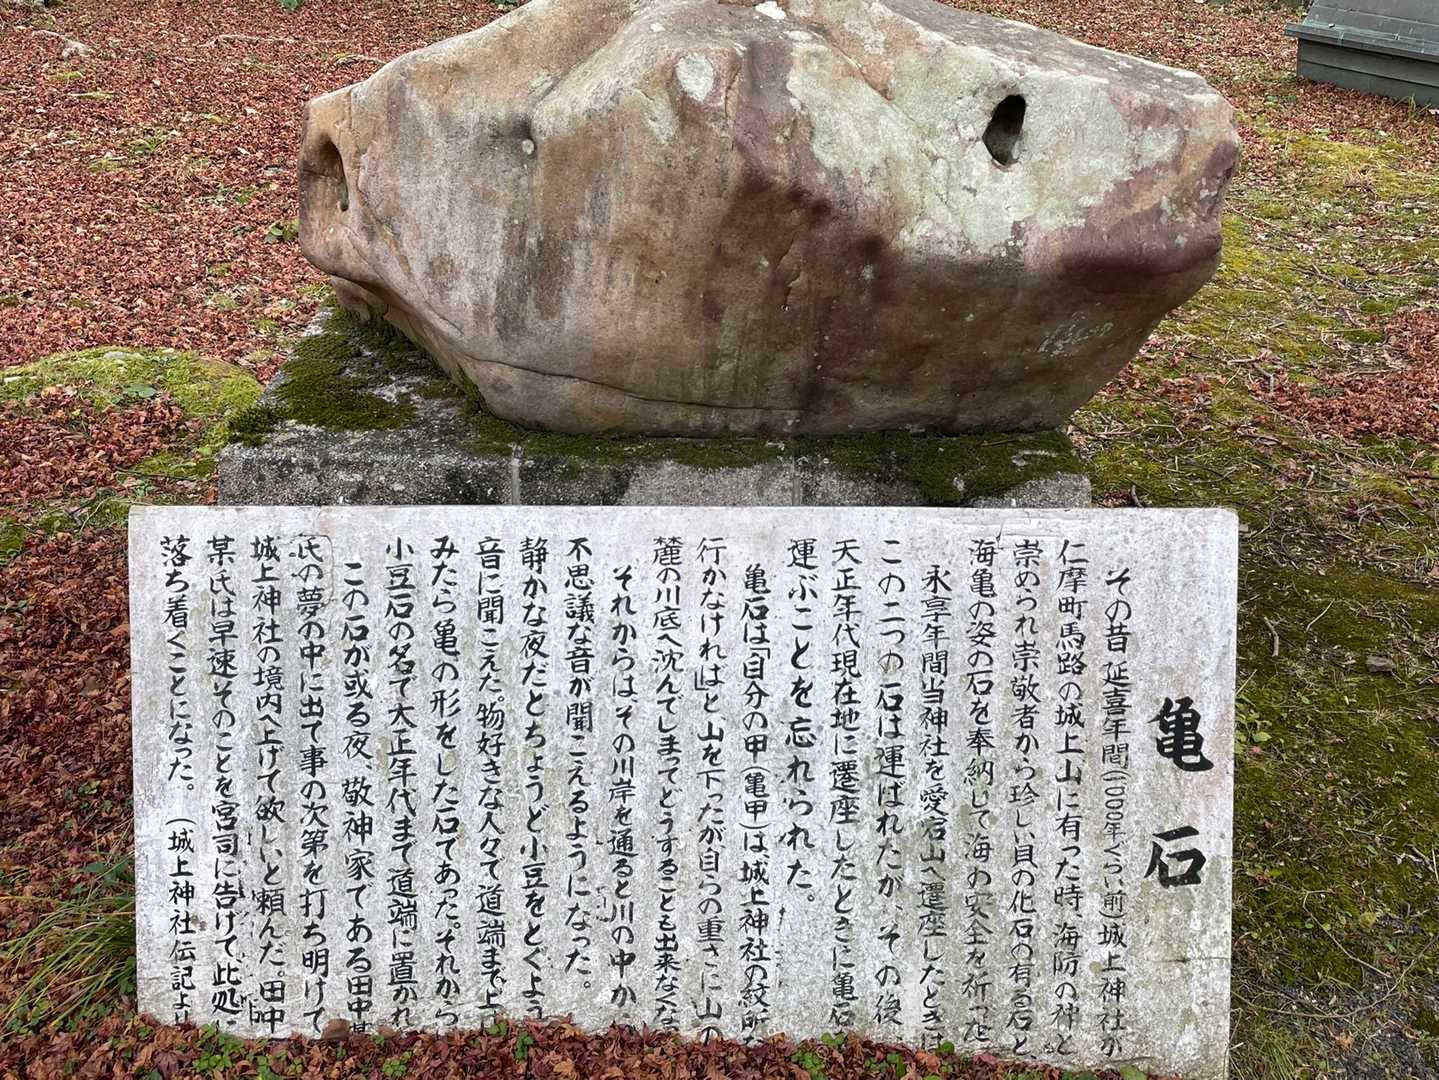 亀石
その昔 延喜年間(1000年ぐらい前)城上神社が
仁摩町馬路の城上山に有った時、海防の神と
崇められ崇敬者から珍しい貝の化石の有る石と、
海亀の姿の石を奉納して海の安全を祈った
永享年間当神社を愛宕山へ遷座したときは
この二つの石は運ばれたが、その後
天正年代現在地に遷座したときに亀石
運ぶことを忘れられた。
亀石は「自分の甲(亀甲)は城上神社の紋所
行かなければ」と、山を下ったが自らの重さに山の
麓の川底へ沈んでしまってどうすることも出来なくな
それからは、その川岸を通ると川の中か
不思議な音が聞こえるようになった。
静かな夜だとちょうど小豆をとぐよう
音に聞こえた。物好きな人々で道端まで上げ
みたら亀の形をした石であった。それから
小豆石の名で大正年代まで道端に置かれ
この石が或る夜、敬神家である田中某
氏の夢の中に出て事の次第を打ち明けて
城上神社の境内へ上げて欲しいと頼んだ。田中
某氏は早速そのことを宮司に告げて此処に
落ち着くことになった。 (城上神社伝記より